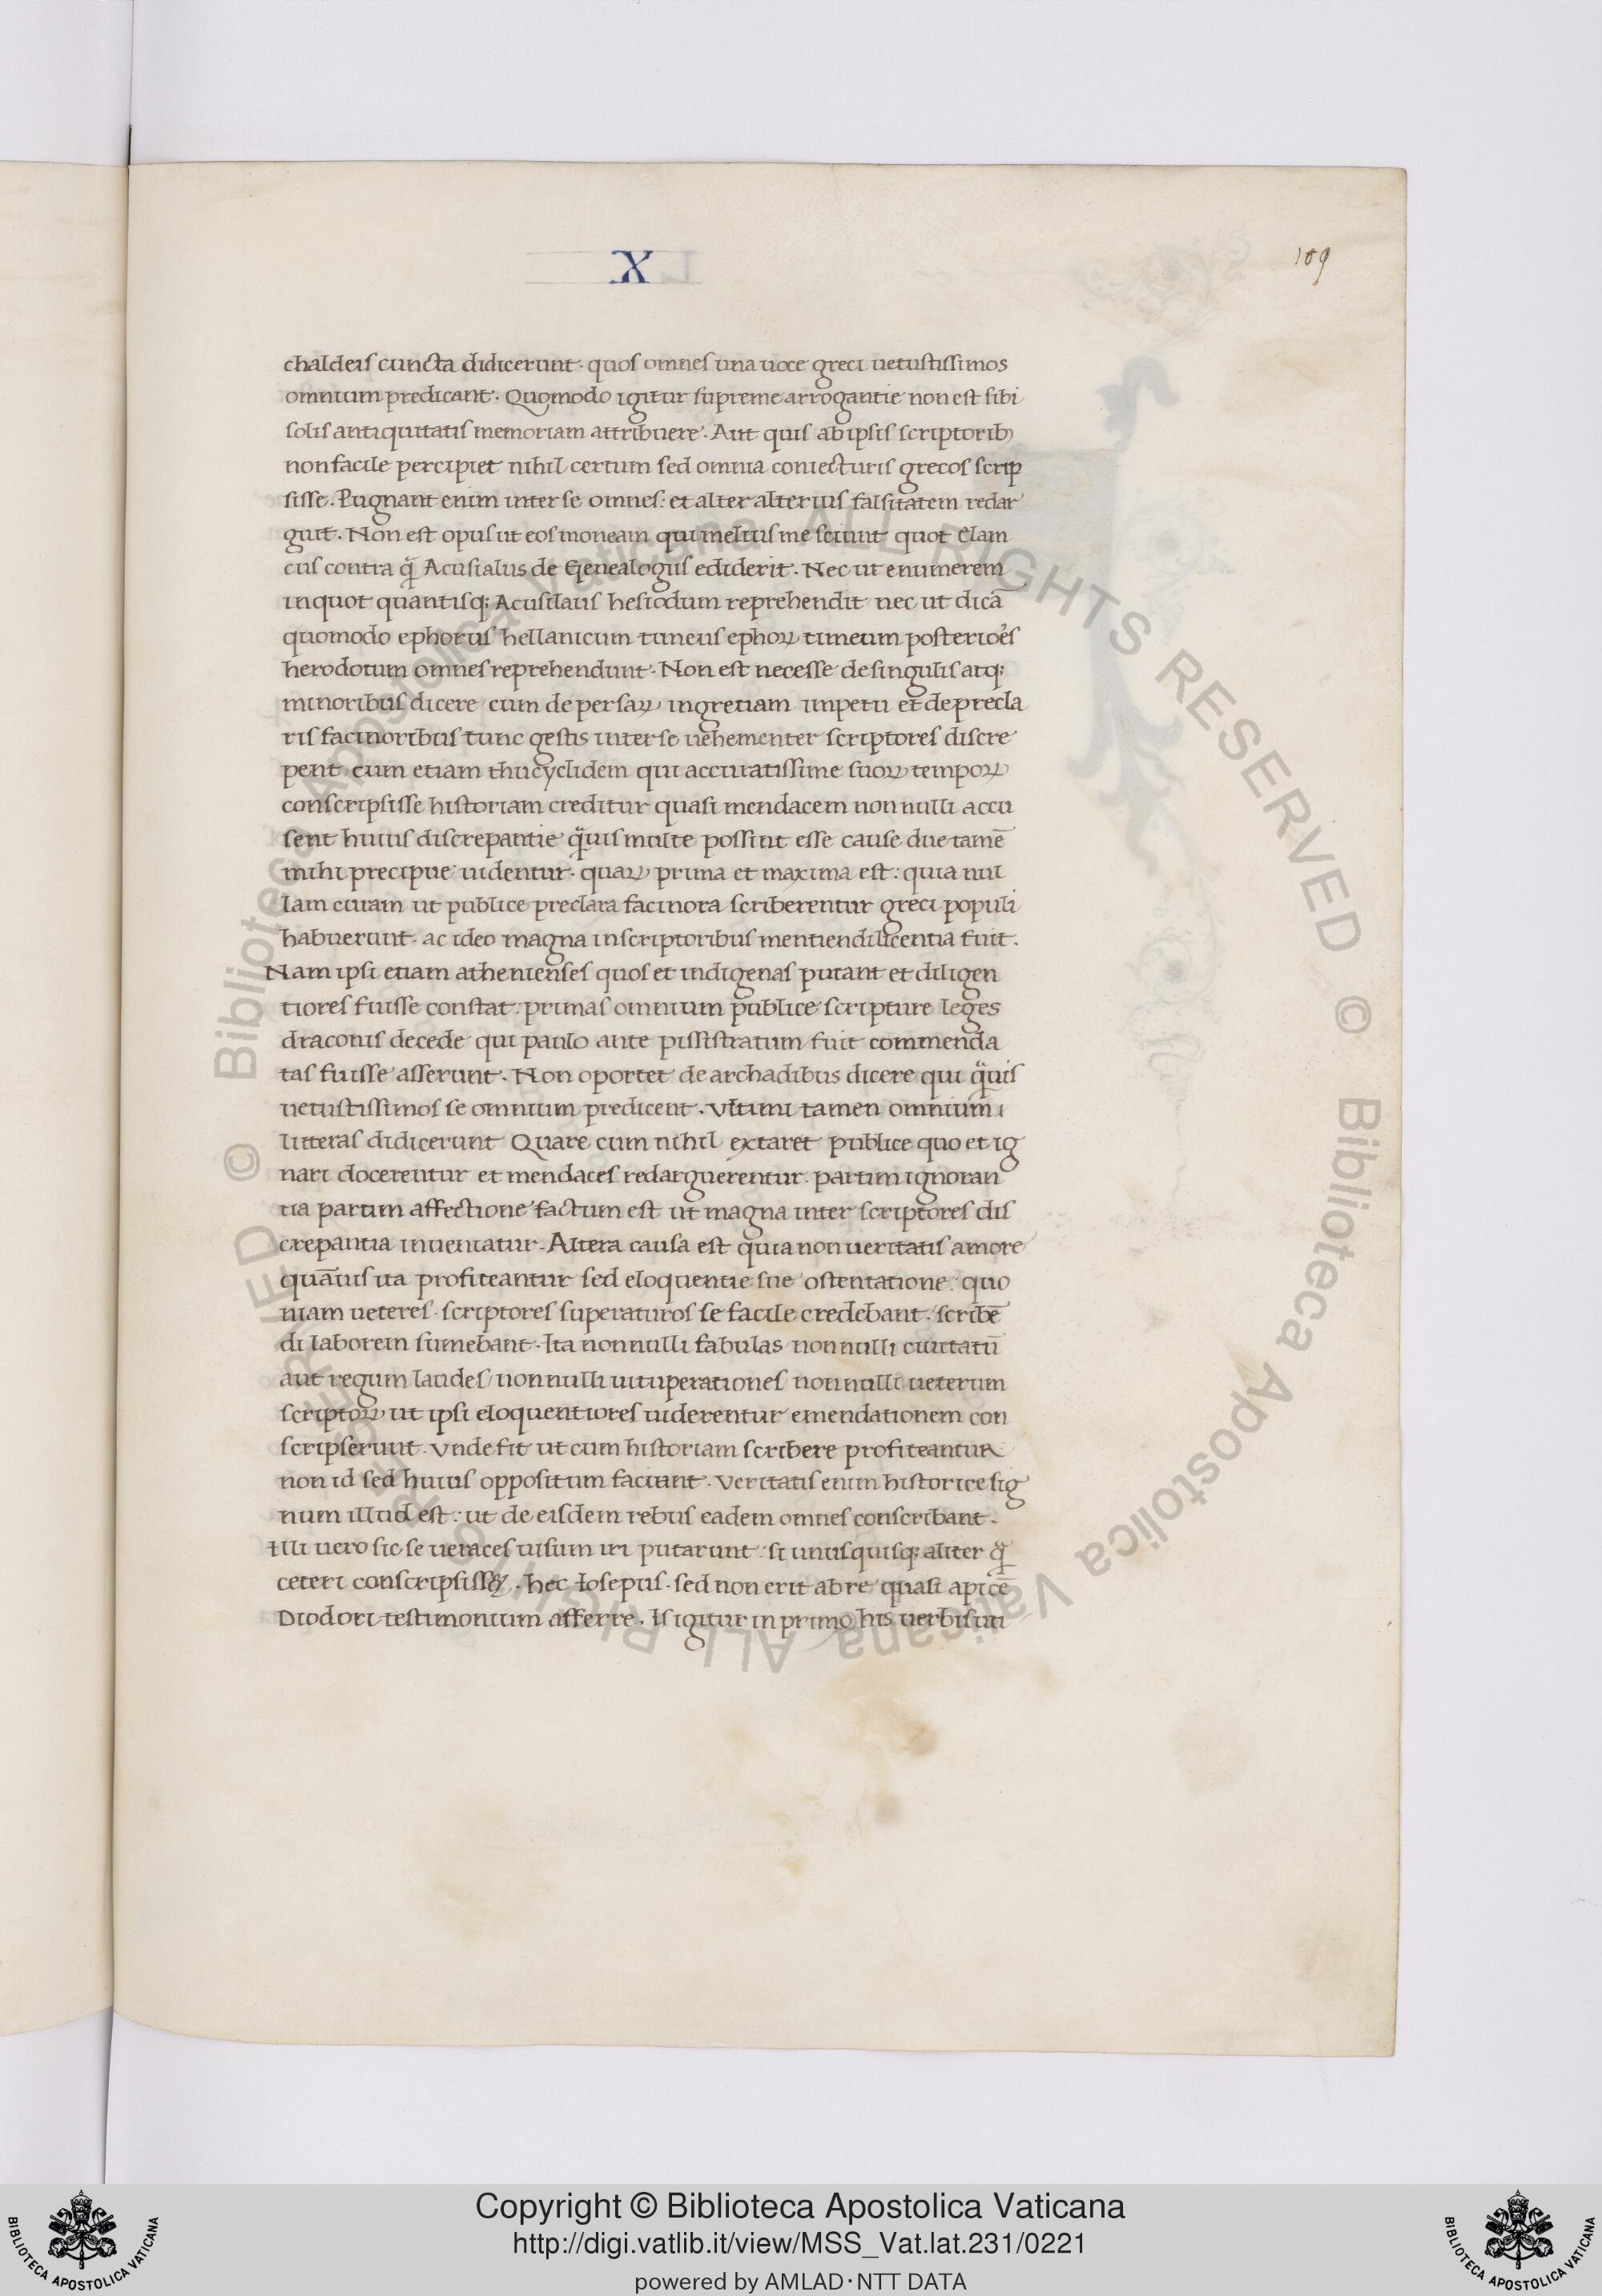 X
109
chaldeis cuncta didicerunt. quos omnes una uoce greci uetustissimos
omnium predicant. Quomodo igitur supreme arrogantie non est sibi
solis antiquitatis memoriam attribuere. Aut quis ab ipsis scriptorib;
non facile percipiet nihil certum sed omnia coniecturis grecos scrip
sisse. Pugnant enim inter se omnes: et alter alterius falsitatem redar
guit. Non est opus ut eos moneam qui melius me sciunt quot Elam
cus contra q̃ Acusialus de Genealogiis ediderit. Nec ut enumerem
in quot quantisq; Acusilaus hesiodum reprehendit nec ut dicã
quomodo ephorus hellanicum timeus ephoꝝ timeum posterioẽs
herodotum omnes reprehendunt. Non est necesse de singulis atq;
minoribus dicere cum de persaꝝ in gretiam impetu et de precla
ris facinoribus tunc gestis inter se uehementer scriptores discre
pent. cum etiam thucyclidem qui accuratissime suoꝝ tempoꝝ
conscripsisse historiam creditur quasi mendacem non nulli accu
sent huius discrepantie q̃uis multe possint esse cause due tamẽ
mihi precipue uidentur. quaꝝ prima et maxima est: quia nul
lam curam ut publice preclara facinora scriberentur greci populi
habuerunt. ac ideo magna in scriptoribus mentiendi licentia fuit.
Nam ipsi etiam athenienses quos et indigenas putant et diligen
tiores fuisse constat: primas omnium publice scripture leges
draconis de cede qui paulo ante pissistratum fuit commenda
tas fuisse asserunt. Non oportet de archadibus dicere qui q̃uis
uetustissimos se omnium predicent. Vltimi tamen omnium
litteras didicerunt Quare cum nihil extaret publice quo et ig
nari docerentur et mendaces redarguerentur. partim ignoran
tia partim affectione factum est ut magna inter scriptores dis
crepantia inueniatur. Altera causa est quia non ueritatis amore
quãuis ita profiteantur sed eloquentie sue ostentatione: quo
niam ueteres scriptores superaturos se facile credebant. scribẽ
di laborem sumebant. Ita non nulli fabulas non nulli ciuitatũ
aut regum laudes non nulli uituperationes non nulli ueterum
scriptoꝝ ut ipsi eloquentiores uiderentur emendationem con
scripserunt. Vnde fit ut cum historiam scribere profiteantur
non id sed huius oppositum faciant. Veritatis enim historice sig
num illud est: ut de eisdem rebus eadem omnes conscribant.
Illi uero sic se ueraces uisum iri putarunt: si unus quisq; aliter q̃
ceteri conscripsisset. hec Iosepus. sed non erit ab re quasi apicẽ
Diodori testimonium afferre. Is igitur in primo his uerbis uti
© Biblioteca Apostolica Vaticana ALL RIGHTS RESERVED © Biblioteca Apostolica Vaticana ALL RIGHTS RESERVED
Copyright © Biblioteca Apostolica Vaticana
http://digi.vatlib.it/view/MSS_Vat.lat.231/0221
powered by AMLAD·NTT DATA
BIBLIOTECA APOSTOLICA VATICANA
BIBLIOTECA APOSTOLICA VATICANA